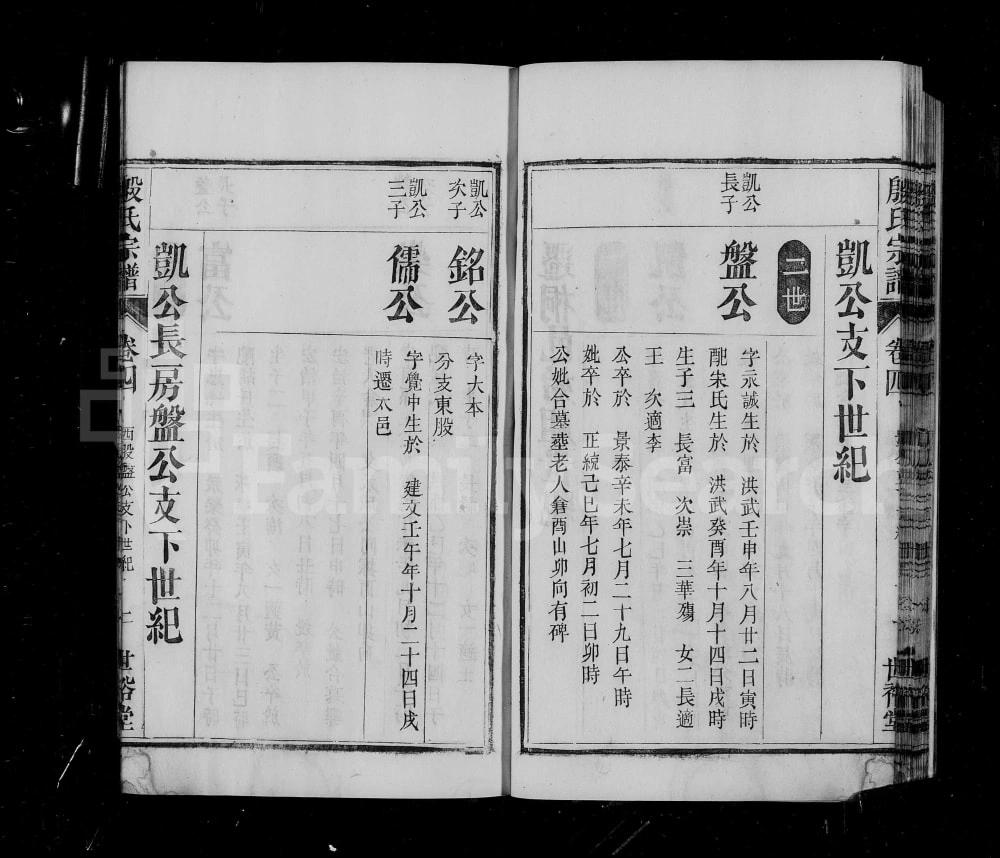 殷氏宗譜
卷四
世裕堂
凱公支下世紀
二世
凱公
長子
盤公
字永誠生於 洪武壬申年八月廿二日寅時
配朱氏生於 洪武癸酉年十月十四日戌時
生子三 長富 次崇 三華殤 女二長適
王 次適李
公卒於 景泰辛未年七月二十九日午時
妣卒於 正統己巳年七月初二日卯時
公妣合墓塟老人倉酉山卯向有碑
凱公
次子
銘公
字大本
分支東股
凱公
三子
儒公
字覺中生於 建文壬午年十月二十四日戌
時遷太邑
凱公長房盤公支下世紀
殷氏宗譜
卷四
西股盤公支下世紀
世裕堂
FamilySearch